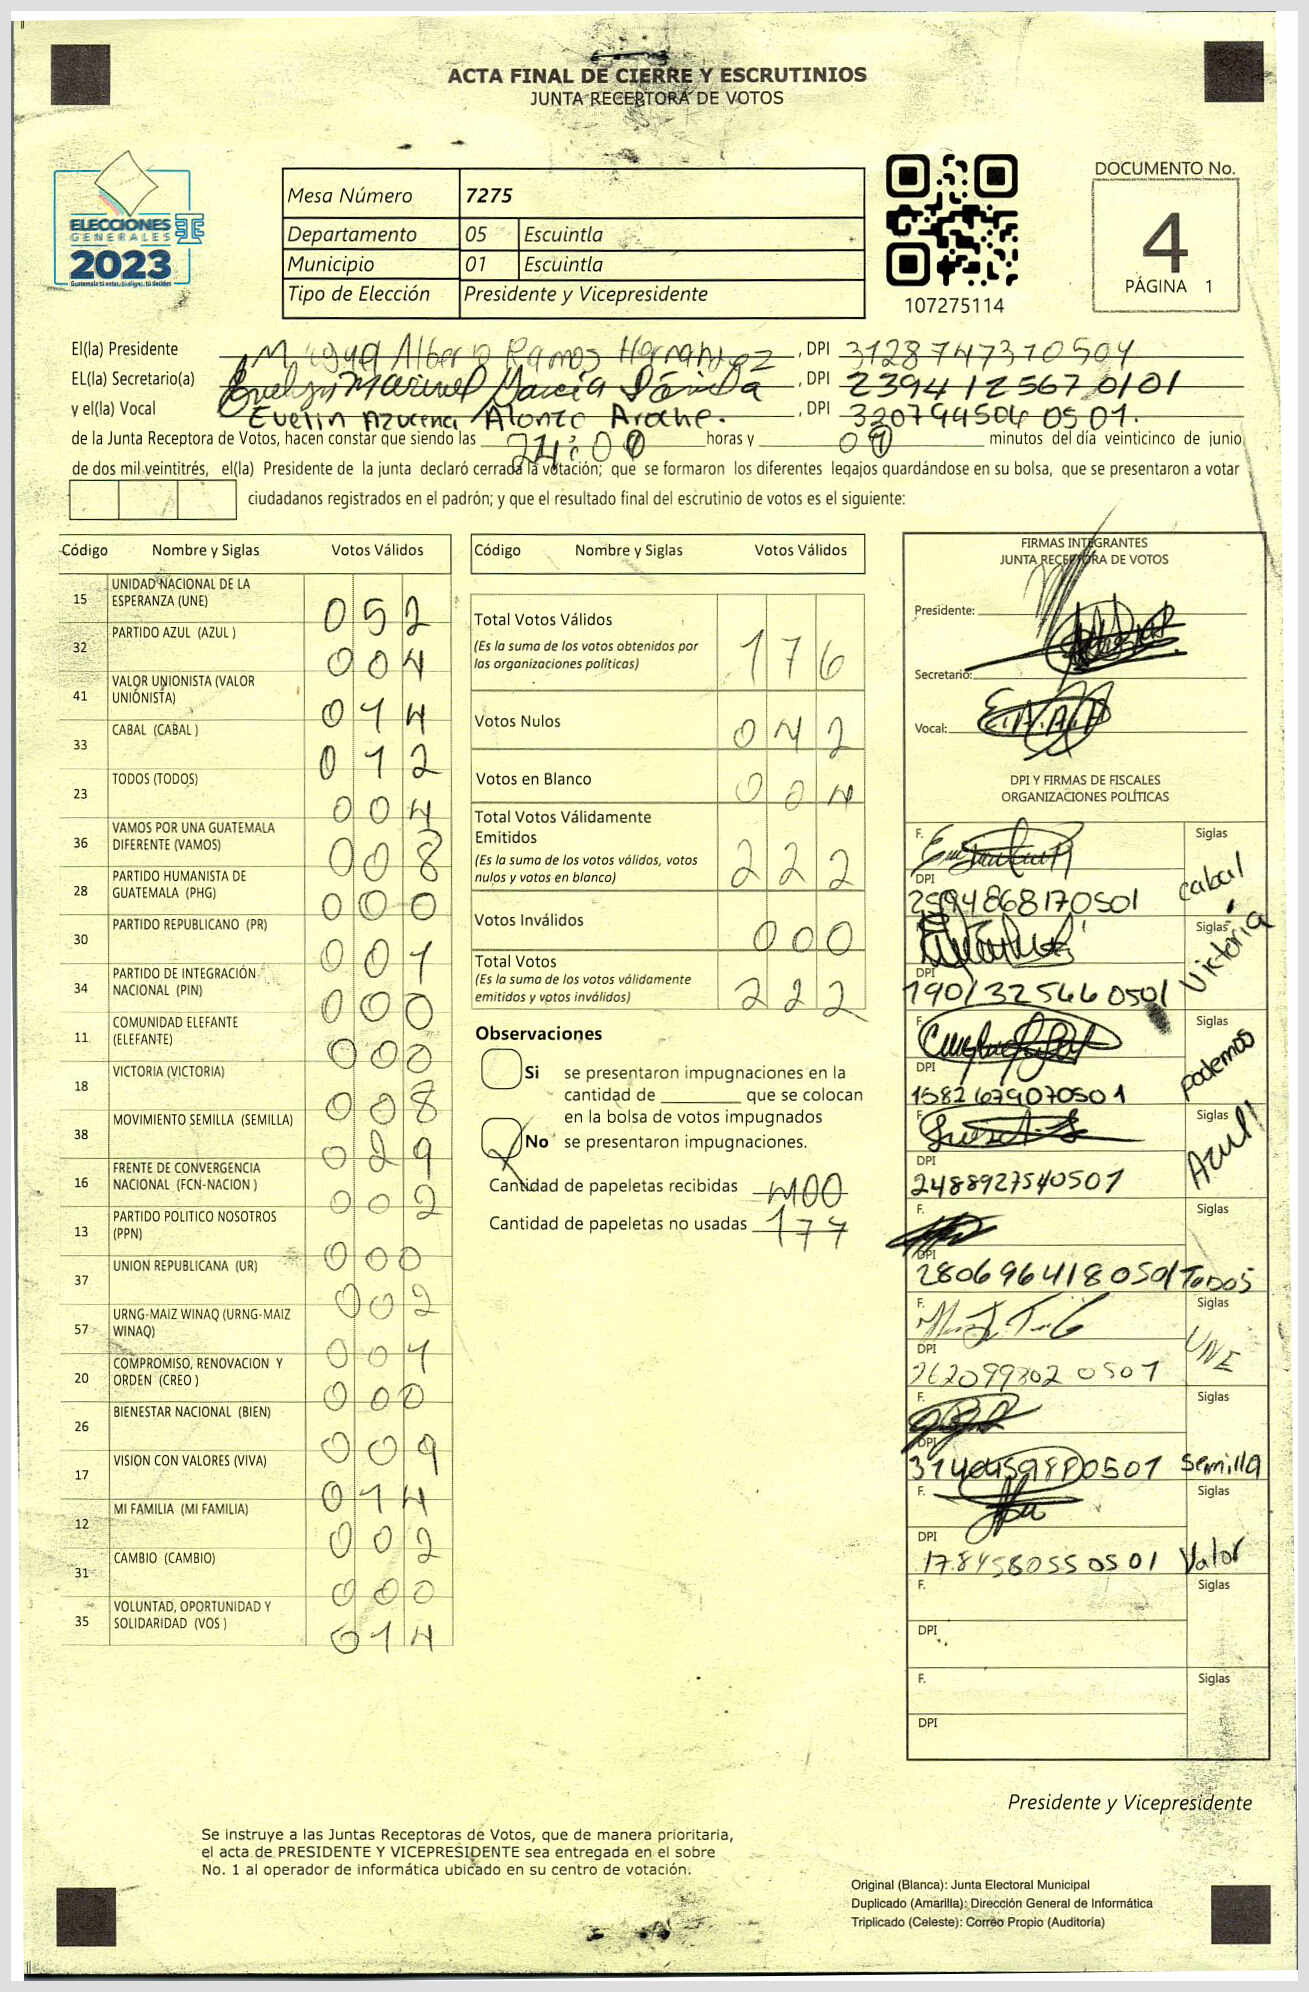 ACTA FINAL DE CIERRE Y ESCRUTINIOS
JUNTA RECEPTORA DE VOTOS
ELECCIONES
GENERALES
2023
Mesa Número 7275
Departamento 05 Escuintla
Municipio 01 Escuintla
Tipo de Elección Presidente y Vicepresidente
107275114
DOCUMENTO No.
4
PÁGINA 1
El(la) Presidente Miguel Alberto Ramos Hernandez, DPI 3128747370504
EL(la) Secretario(a) Evelyn Marisol García, DPI 2394125670101
y el(la) Vocal Evelin Azucena Alonzo Arache., DPI 3207945040501.
de la Junta Receptora de Votos, hacen constar que siendo las horas y minutos del día veinticinco de junio
de dos mil veintitrés, el(la) Presidente de la junta declaró cerrada la votación; que se formaron los diferentes legajos guardándose en su bolsa, que se presentaron a votar
ciudadanos registrados en el padrón; y que el resultado final del escrutinio de votos es el siguiente:
Código Nombre y Siglas Votos Válidos
15 UNIDAD NACIONAL DE LA ESPERANZA (UNE) 052
32 PARTIDO AZUL (AZUL ) 004
41 VALOR UNIONISTA (VALOR UNIONISTA) 014
33 CABAL (CABAL ) 012
23 TODOS (TODOS) 004
36 VAMOS POR UNA GUATEMALA DIFERENTE (VAMOS) 008
28 PARTIDO HUMANISTA DE GUATEMALA (PHG) 000
30 PARTIDO REPUBLICANO (PR) 001
34 PARTIDO DE INTEGRACIÓN NACIONAL (PIN) 000
11 COMUNIDAD ELEFANTE (ELEFANTE) 000
18 VICTORIA (VICTORIA) 008
38 MOVIMIENTO SEMILLA (SEMILLA) 029
16 FRENTE DE CONVERGENCIA NACIONAL (FCN-NACION ) 002
13 PARTIDO POLITICO NOSOTROS (PPN) 000
37 UNION REPUBLICANA (UR) 002
57 URNG-MAIZ WINAQ (URNG-MAIZ WINAQ) 001
20 COMPROMISO, RENOVACION Y ORDEN (CREO ) 000
26 BIENESTAR NACIONAL (BIEN) 009
17 VISION CON VALORES (VIVA) 014
12 MI FAMILIA (MI FAMILIA) 002
31 CAMBIO (CAMBIO) 000
35 VOLUNTAD, OPORTUNIDAD Y SOLIDARIDAD (VOS ) 014
Código Nombre y Siglas Votos Válidos
Total Votos Válidos 176
(Es la suma de los votos obtenidos por
las organizaciones políticas)
Votos Nulos 042
Votos en Blanco 004
Total Votos Válidamente
Emitidos 222
(Es la suma de los votos válidos, votos
nulos y votos en blanco)
Votos Inválidos 000
Total Votos 222
(Es la suma de los votos válidamente
emitidos y votos inválidos)
Observaciones
Si se presentaron impugnaciones en la
cantidad de ________ que se colocan
en la bolsa de votos impugnados
X No se presentaron impugnaciones.
Cantidad de papeletas recibidas 400
Cantidad de papeletas no usadas 177
FIRMAS INTEGRANTES
JUNTA RECEPTORA DE VOTOS
Presidente:
Secretario:
Vocal:
DPI Y FIRMAS DE FISCALES
ORGANIZACIONES POLÍTICAS
F. Siglas cabal
DPI 2594868170501
F. Siglas Victoria
DPI 1901325660501
F. Siglas podemos
DPI 1582679070501
F. Siglas Azul
DPI 2488927540501
F. Siglas TODOS
DPI 2806964180501
F. Siglas UNE
DPI 2620993020501
F. Siglas Semilla
DPI
F. Siglas Valor
DPI 1784580550501
F. Siglas
DPI
F. Siglas
DPI
Presidente y Vicepresidente
Se instruye a las Juntas Receptoras de Votos, que de manera prioritaria,
el acta de PRESIDENTE Y VICEPRESIDENTE sea entregada en el sobre
No. 1 al operador de informática ubicado en su centro de votación.
Original (Blanca): Junta Electoral Municipal
Duplicado (Amarilla): Dirección General de Informática
Triplicado (Celeste): Correo Propio (Auditoría)